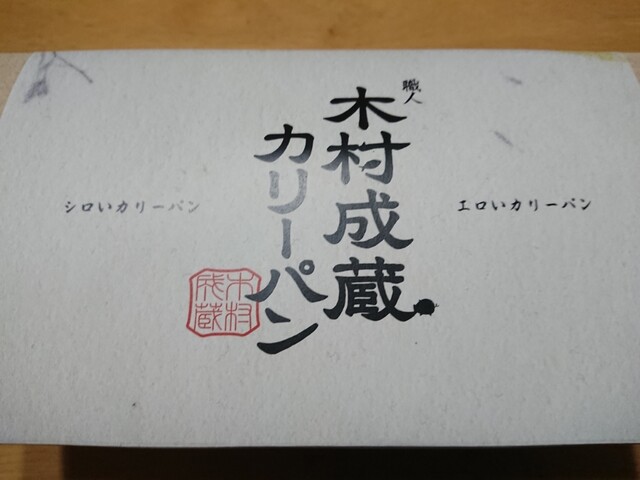 職人
木村成蔵
カリーパン
エロいカリーパン
シロいカリーパン
木村
成蔵